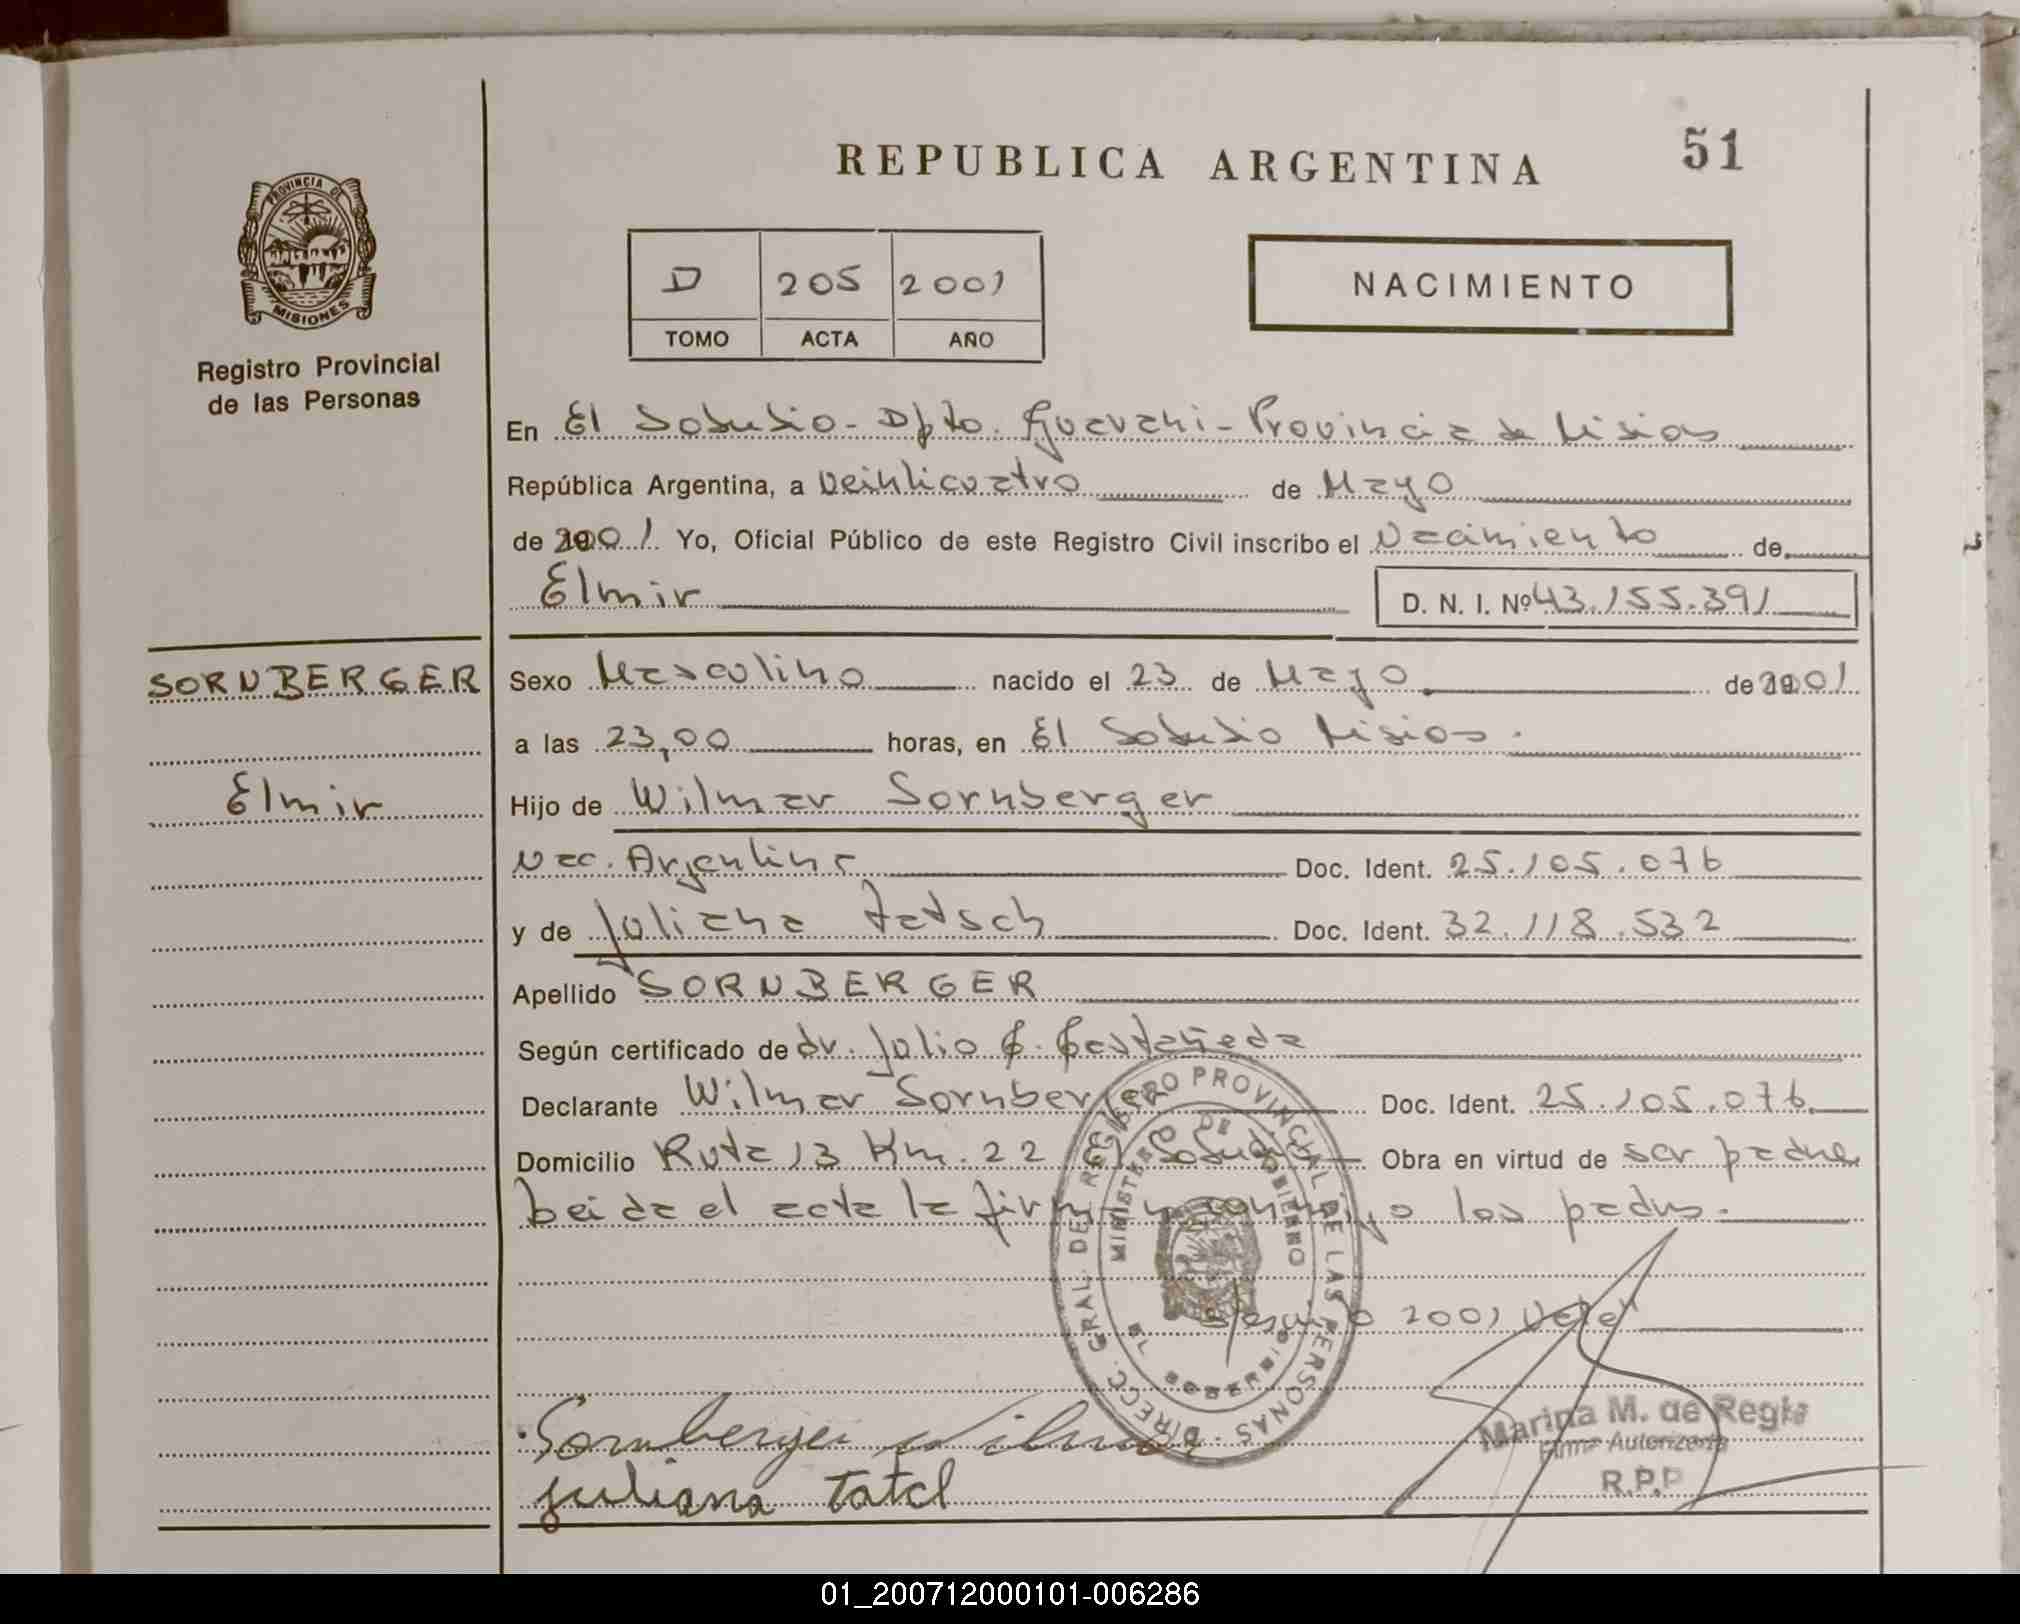 REPUBLICA ARGENTINA
51
PROVINCIA DE
MISIONES
Registro Provincial
de las Personas
D 205 2001
TOMO ACTA AÑO
NACIMIENTO
En El Soberbio - Dpto. Guarani - Provincia de Misiones
República Argentina, a Veinticuatro de Mayo
de 2001 Yo, Oficial Público de este Registro Civil inscribo el Nacimiento de
Elmir
D. N. I. Nº 43.155.391
SORNBERGER
Sexo Masculino nacido el 23 de Mayo de 2001
a las 23,00 horas, en El Soberbio Misiones.
Elmir
Hijo de Wilmar Sornberger
Nac. Argentina Doc. Ident. 25.105.076
y de Juliana Tatsch Doc. Ident. 32.118.532
Apellido SORNBERGER
Según certificado de dr. Julio C. Castañeda
Declarante Wilmar Sornberger Doc. Ident. 25.105.076
Domicilio Ruta 13 Km. 22 El Soberbio Obra en virtud de ser padre
Leida el acta la firman conmigo los padres.
2001 Vale"
DIRECC. GRAL. DEL REGISTRO PROVINCIAL DE LAS PERSONAS
MINISTERIO DE GOBIERNO
EL SOBERBIO
Sornberger Wilmar
juliana Tatcl
Marina M. de Regis
Firma Autorizada
R.P.P
01_200712000101-006286